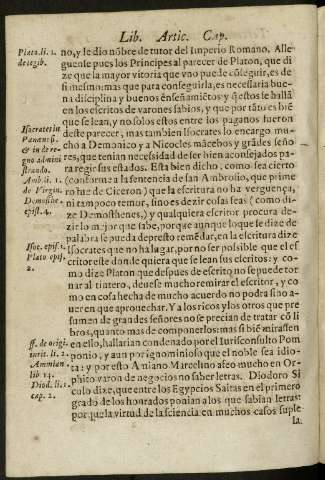 Lib. Artic. Cap.
Plato. li. 1. de legib.
no, y le dio nõbre de tutor del Imperio Romano. Alle
guense pues los Principes al parecer de Platon, que di
ze que la mayor vitoria que vno puede cõseguir, es de
si mesmo: mas que para conseguirla, es necessaria bue-
na disciplina y buenos enseñamiẽtos y q̃ estos se hallã
en los escritos de varones sabios, y que por tãto es biẽ
que se lean, y no solos estos entre los paganos fueron
Isocrates in
deste parecer, mas tambien Isocrates lo encargo mu-
et in de re-
cho a Demonico y a Nicocles mãcebos y grãdes seño
gno admini
res, que tenian necesidad de ser bien aconsejados pa-
strando.
ra regir sus estados. Esta bien dicho, como sea cierto
Amb. li. 1.
(conforme a la sentencia de san Ambrosio, que prime
de Virgin.
ro fue de Ciceron) que la escritura no ha verguença,
ni tampoco temor, sino es dezir cosas feas (como di-
epist. 4.
ze Demosthenes,) y qualquiera escritor procura de-
zir lo mejor que sabe, porque aunque lo que se dize de
palabra se pueda de presto remẽdar, en la escritura dize
Isoc. epist. 1.
Isocrates que no ha lugar, por no ser possible que el es
Plato epist.
critor este donde quiera que se lean sus escritos: y co-
2.
mo dize Platon que despues de escrito no se puede tor
nar al tintero, deuese mucho remirar el escritor, y co
mo en cosa hecha de mucho acuerdo no podra sino a-
uer en que aprouechar. Y a los ricos y los otros que pre
sumen de grandes señores no se precian de tratar cõ li
bros, quanto mas de componerlos: mas si biẽ mirassen
ff. de origi.
en ello, hallarian condenado por el Iurisconsulto Pom
iuris. li. 2.
ponio, y aun por ignominioso que el noble sea idio-
Ammian.
ta: y por esto Amiano Marcelino afeo mucho en Or-
lib 14.
phito varon de negocios no saber letras. Diodoro Si
Diod. li. 1.
culo dize, que entre los Egypcios Saitas en el primero
cap. 2.
grado de los honrados ponian a los que sabian letras:
porque la virtud de la sciencia en muchos casos suple
la